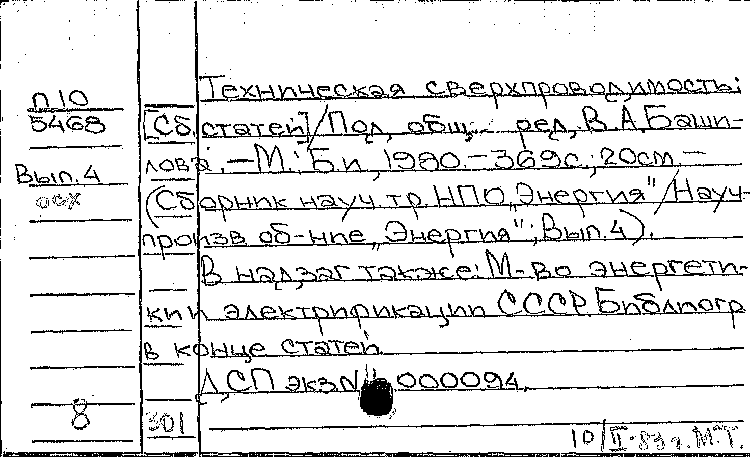 П10
5468
Вып. 4
осх
Техническая сверхпроводимость:
[Сб. статей]/Под общ. ред. В.А.Баши-
лова. – М.: Б.и., 1980. – 369с.; 20см. –
(Сборник науч. тр. НПО „Энергия"/Науч.-
произв об-ние „Энергия"; Вып. 4).
В надзаг также: М-во энергети-
ки и электрификации СССР. Библиогр
в конце статей.
ДСП экз N 000094.
8
301
10/II-83г. М.Т.